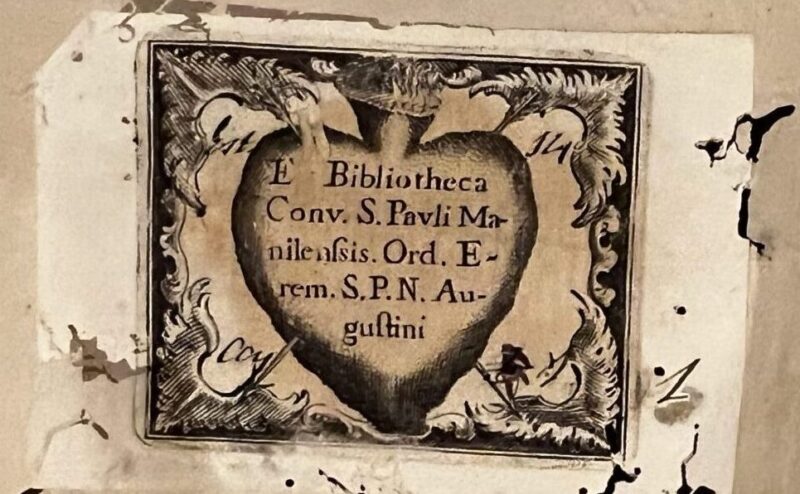 E Bibliotheca
Conv. S. Pavli Ma-
nilenſsis. Ord. E-
rem. S. P. N. Au-
guſtini
1